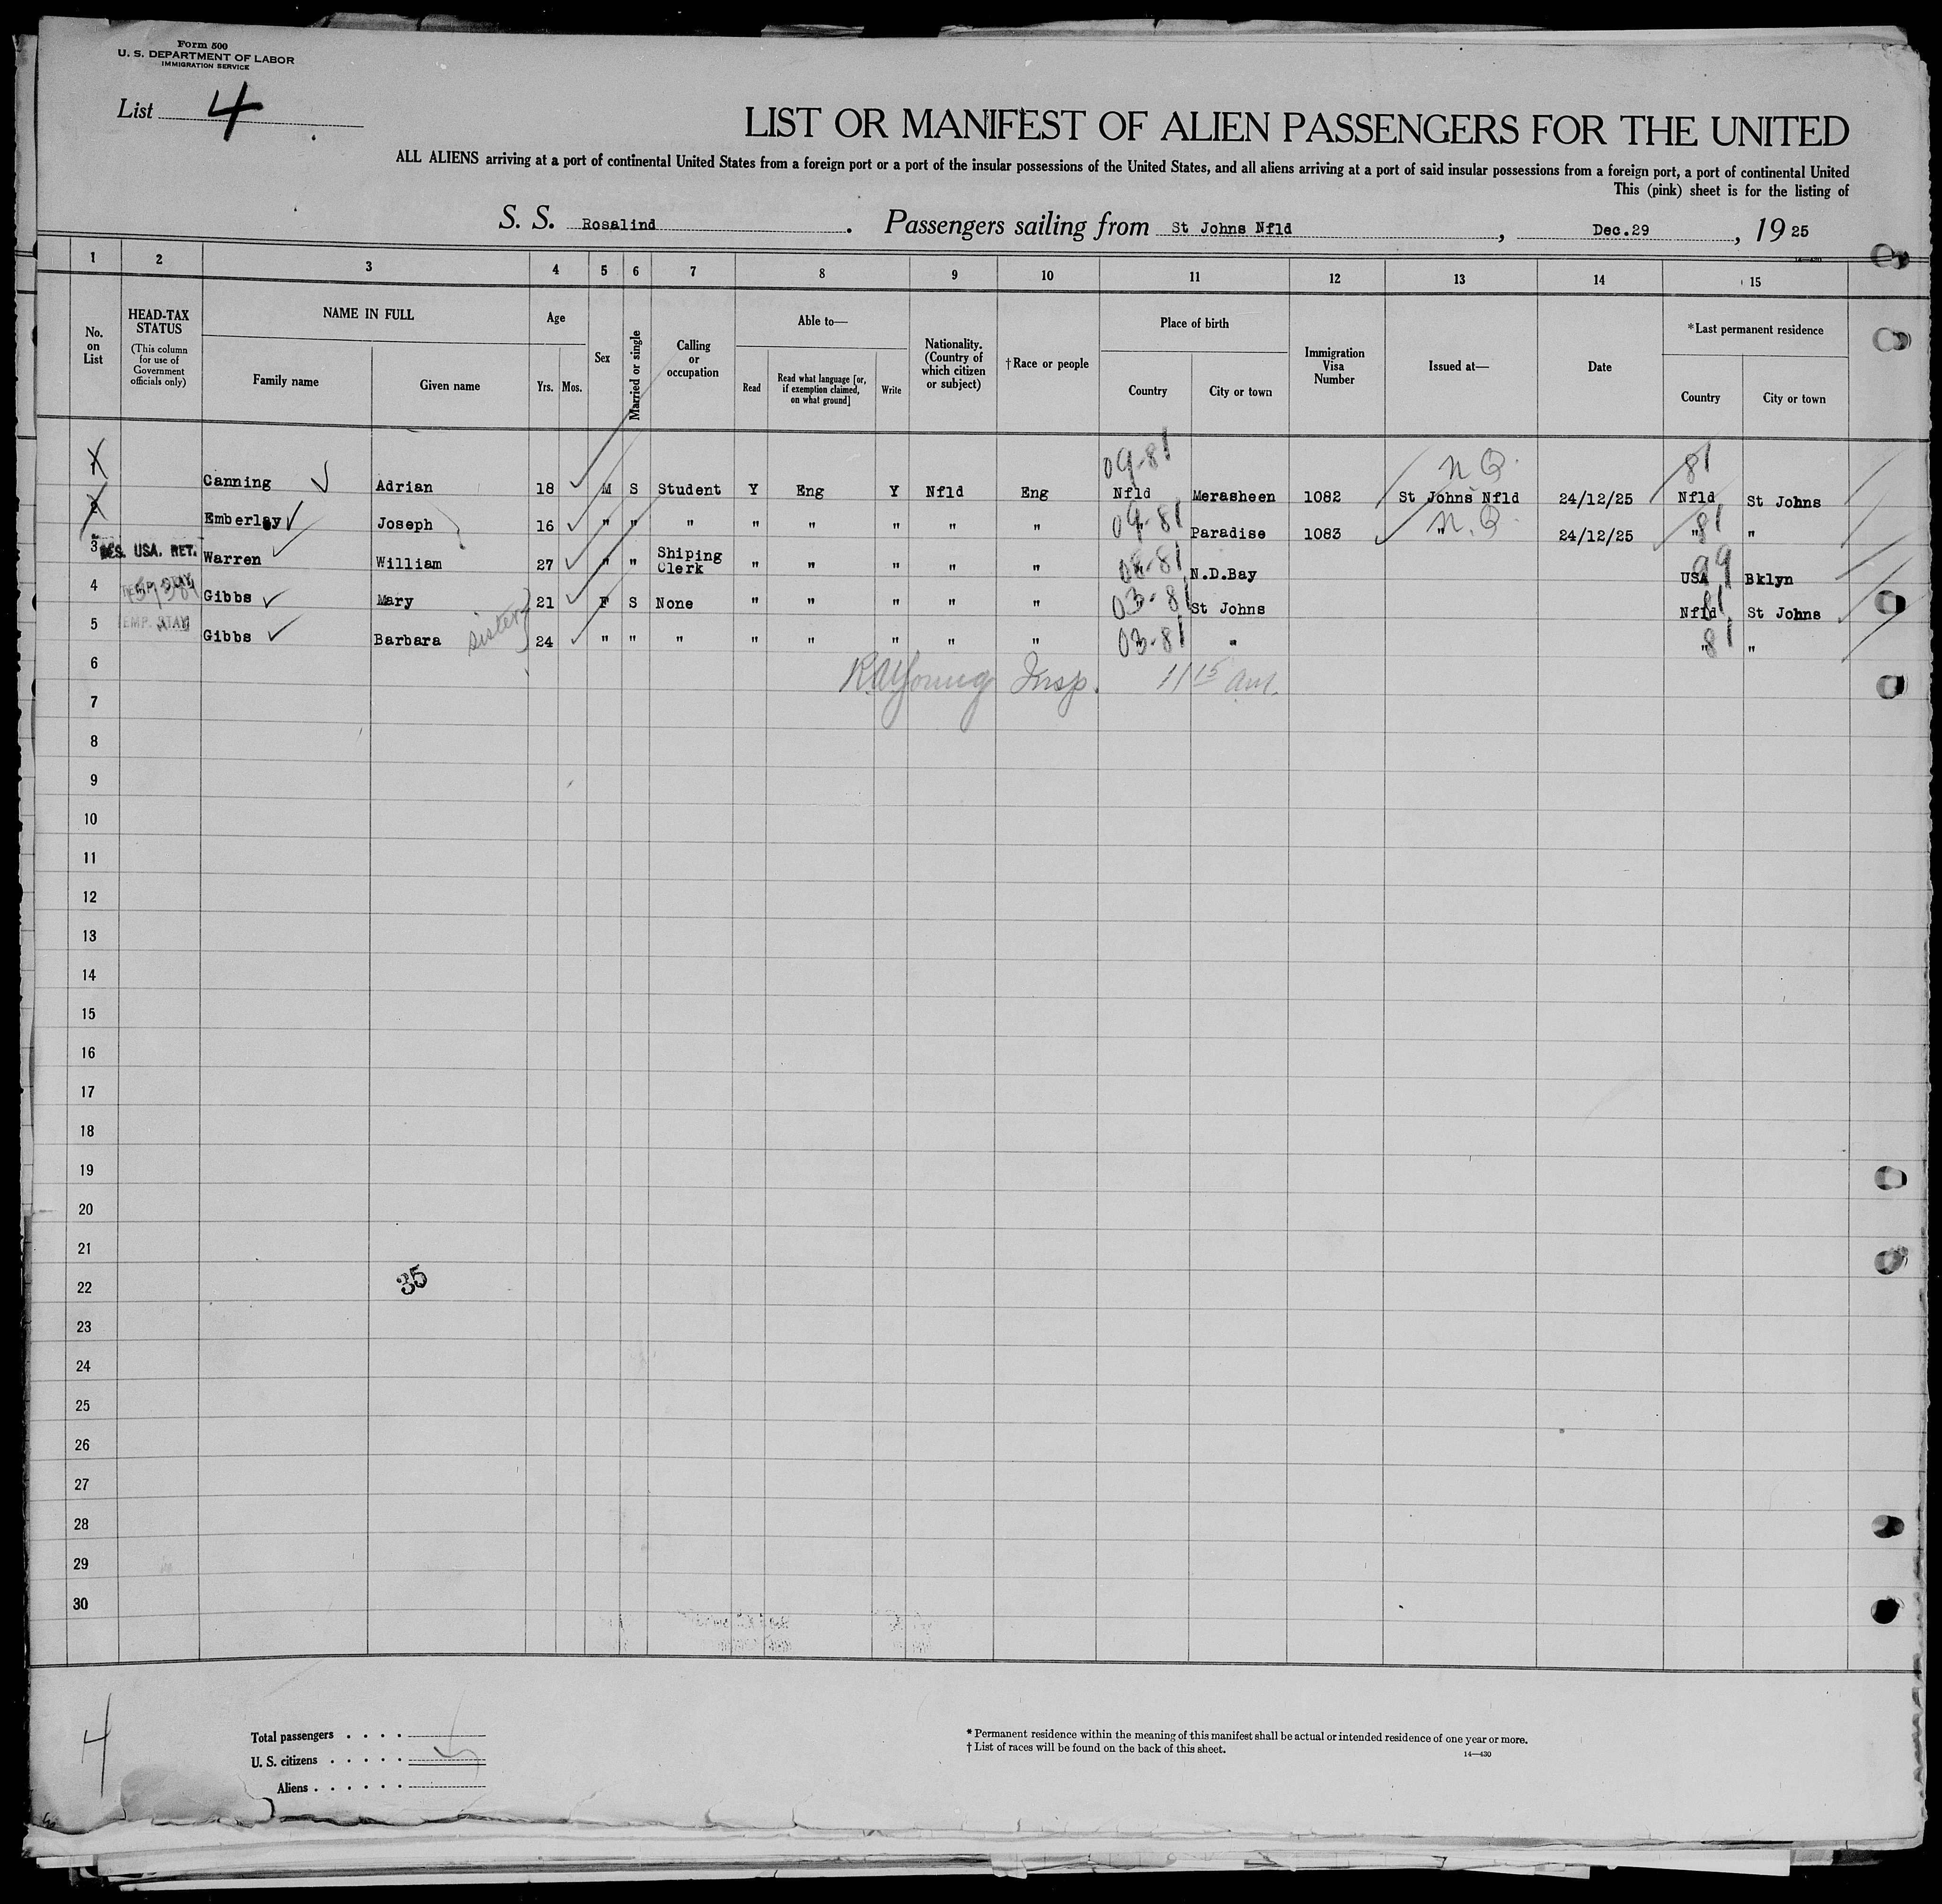 Form 500
U. S. DEPARTMENT OF LABOR
IMMIGRATION SERVICE
List 4
LIST OR MANIFEST OF ALIEN PASSENGERS FOR THE UNITED
ALL ALIENS arriving at a port of continental United States from a foreign port or a port of the insular possessions of the United States, and all aliens arriving at a port of said insular possessions from a foreign port, a port of continental United
This (pink) sheet is for the listing of
S. S. Rosalind. Passengers sailing from St Johns Nfld, Dec.29, 19 25
14—430
1 2 3 4 5 6 7 8 9 10 11 12 13 14 15
No. on List
HEAD-TAX STATUS
(This column for use of Government officials only)
NAME IN FULL
Family name
Given name
Age
Yrs.
Mos.
Sex
Married or single
Calling or occupation
Able to—
Read
Read what language [or, if exemption claimed, on what ground]
Write
Nationality. (Country of which citizen or subject)
†Race or people
Place of birth
Country
City or town
Immigration Visa Number
Issued at—
Date
*Last permanent residence
Country
City or town
09-81 N Q. 81
1 Canning Adrian 18 M S Student Y Eng Y Nfld Eng Nfld Merasheen 1082 St Johns Nfld 24/12/25 Nfld St Johns
2 Emberley Joseph 16 " " " " " " " " 09-81 " Paradise 1083 " N.Q. 24/12/25 " 81 "
3 RES. USA. RET. Warren William 27 " " Shiping Clerk " " " " " 08-81 " N.D.Bay USA 99 Bklyn
4 Gibbs Mary 21 F S None " " " " " 03-81 " St Johns Nfld 81 St Johns
5 TEMP. STAY Gibbs Barbara sisters 24 " " " " " " " " 03-81 " " 81 "
6 R A Young Insp. 11 15 am.
7
8
9
10
11
12
13
14
15
16
17
18
19
20
21
22 35
23
24
25
26
27
28
29
30
4
Total passengers . . . .
U. S. citizens . . . . .
Aliens . . . . . .
* Permanent residence within the meaning of this manifest shall be actual or intended residence of one year or more.
† List of races will be found on the back of this sheet.
14—430